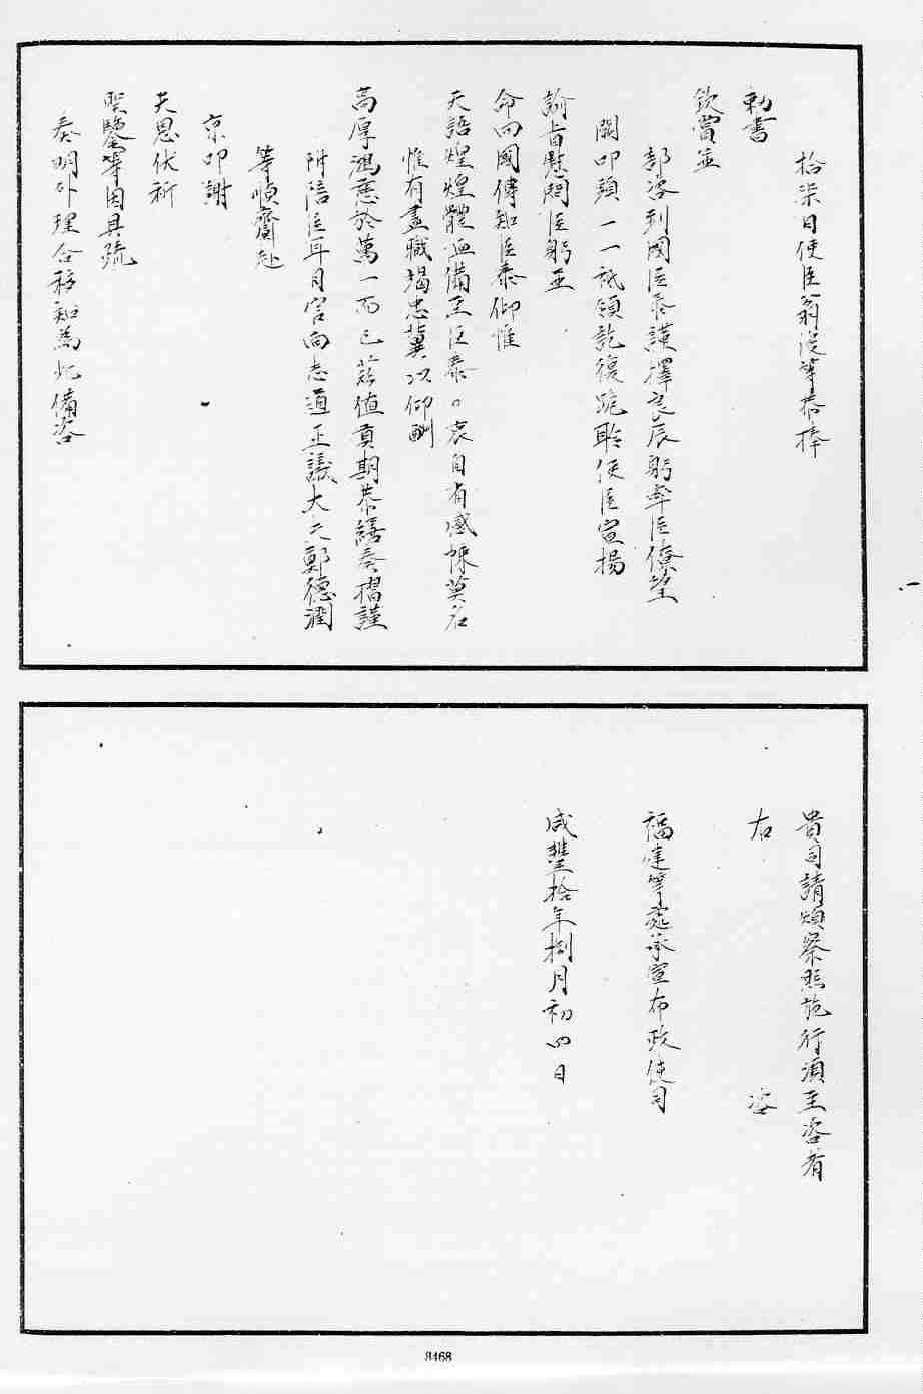 拾柒日使臣翁俊等恭捧
勅書
欽賞並
部咨到國臣泰謹擇良辰躬率臣僚望
闕叩頭一一祗領訖復跪聆使臣宣揚
諭旨慰問臣躬並
命回國傳知臣泰仰惟
天語煌煌體恤備至臣泰〃衷自省感悚莫名
惟有盡職竭忠冀以仰酬
高厚鴻慈於萬一而已茲值貢期恭繕奏摺謹
附陪臣耳目官向志道正議大夫鄭德潤
等順齎赴
京叩謝
天恩伏祈
聖鑒等因具疏
奏明外理合移知為此備咨
貴司請煩察照施行須至咨者
右 咨
福建等處承宣布政使司
咸豐拾年捌月初四日
8468